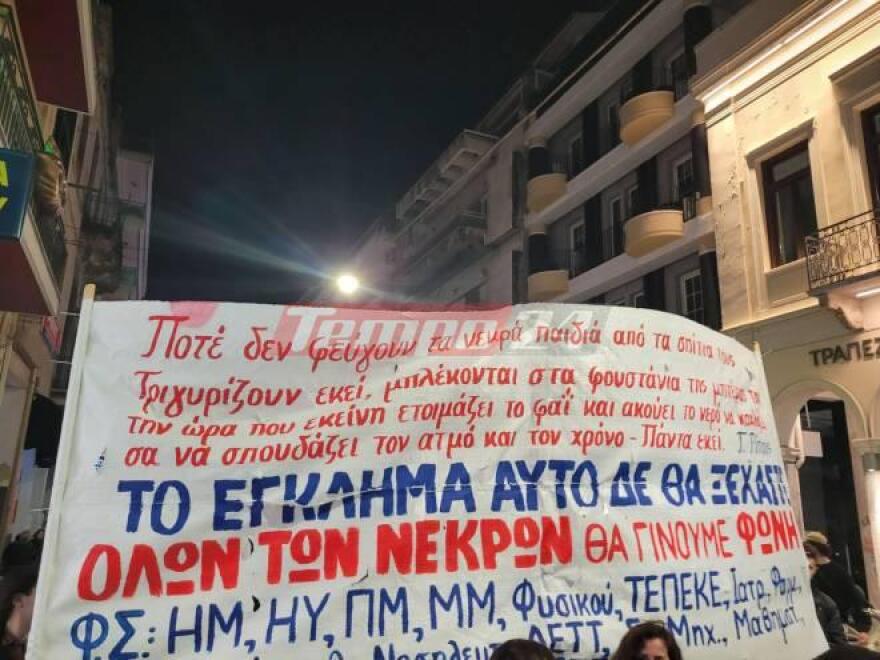 Ποτέ δεν φεύγουν τα νεκρά παιδιά από τα σπίτια τους
Τριγυρίζουν εκεί, μπλέκονται στα φουστάνια της μητέρας
την ώρα που εκείνη ετοιμάζει το φαΐ και ακούει το νερό να
σα να σπουδάζει τον ατμό και τον χρόνο - Πάντα εκεί. Γ. Ρίτσος
ΤΟ ΕΓΚΛΗΜΑ ΑΥΤΟ ΔΕ ΘΑ ΞΕΧΑΣΤΕΙ
ΟΛΩΝ ΤΩΝ ΝΕΚΡΩΝ ΘΑ ΓΙΝΟΥΜΕ ΦΩΝΗ
Φ.Σ: ΗΜ, ΗΥ, ΠΜ, ΜΜ, Φυσικού, ΤΕΠΕΚΕ, Ιατρ, Φαρμ,
ΔΕΤΤ, Μηχ., Μαθηματ,
ΤΡΑΠΕΖ